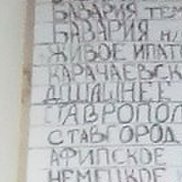 БАЗАРИЯ ТЕМ
БАЗАРИЯ Н/
ЖИВОЕ ИПАТ
КАРАЧАЕВСК
ДОМАШНЕЕ
СТАВРОПОЛ
СТАВГОРОД
АФИПСКОЕ
НЕМЕЦКОЕ